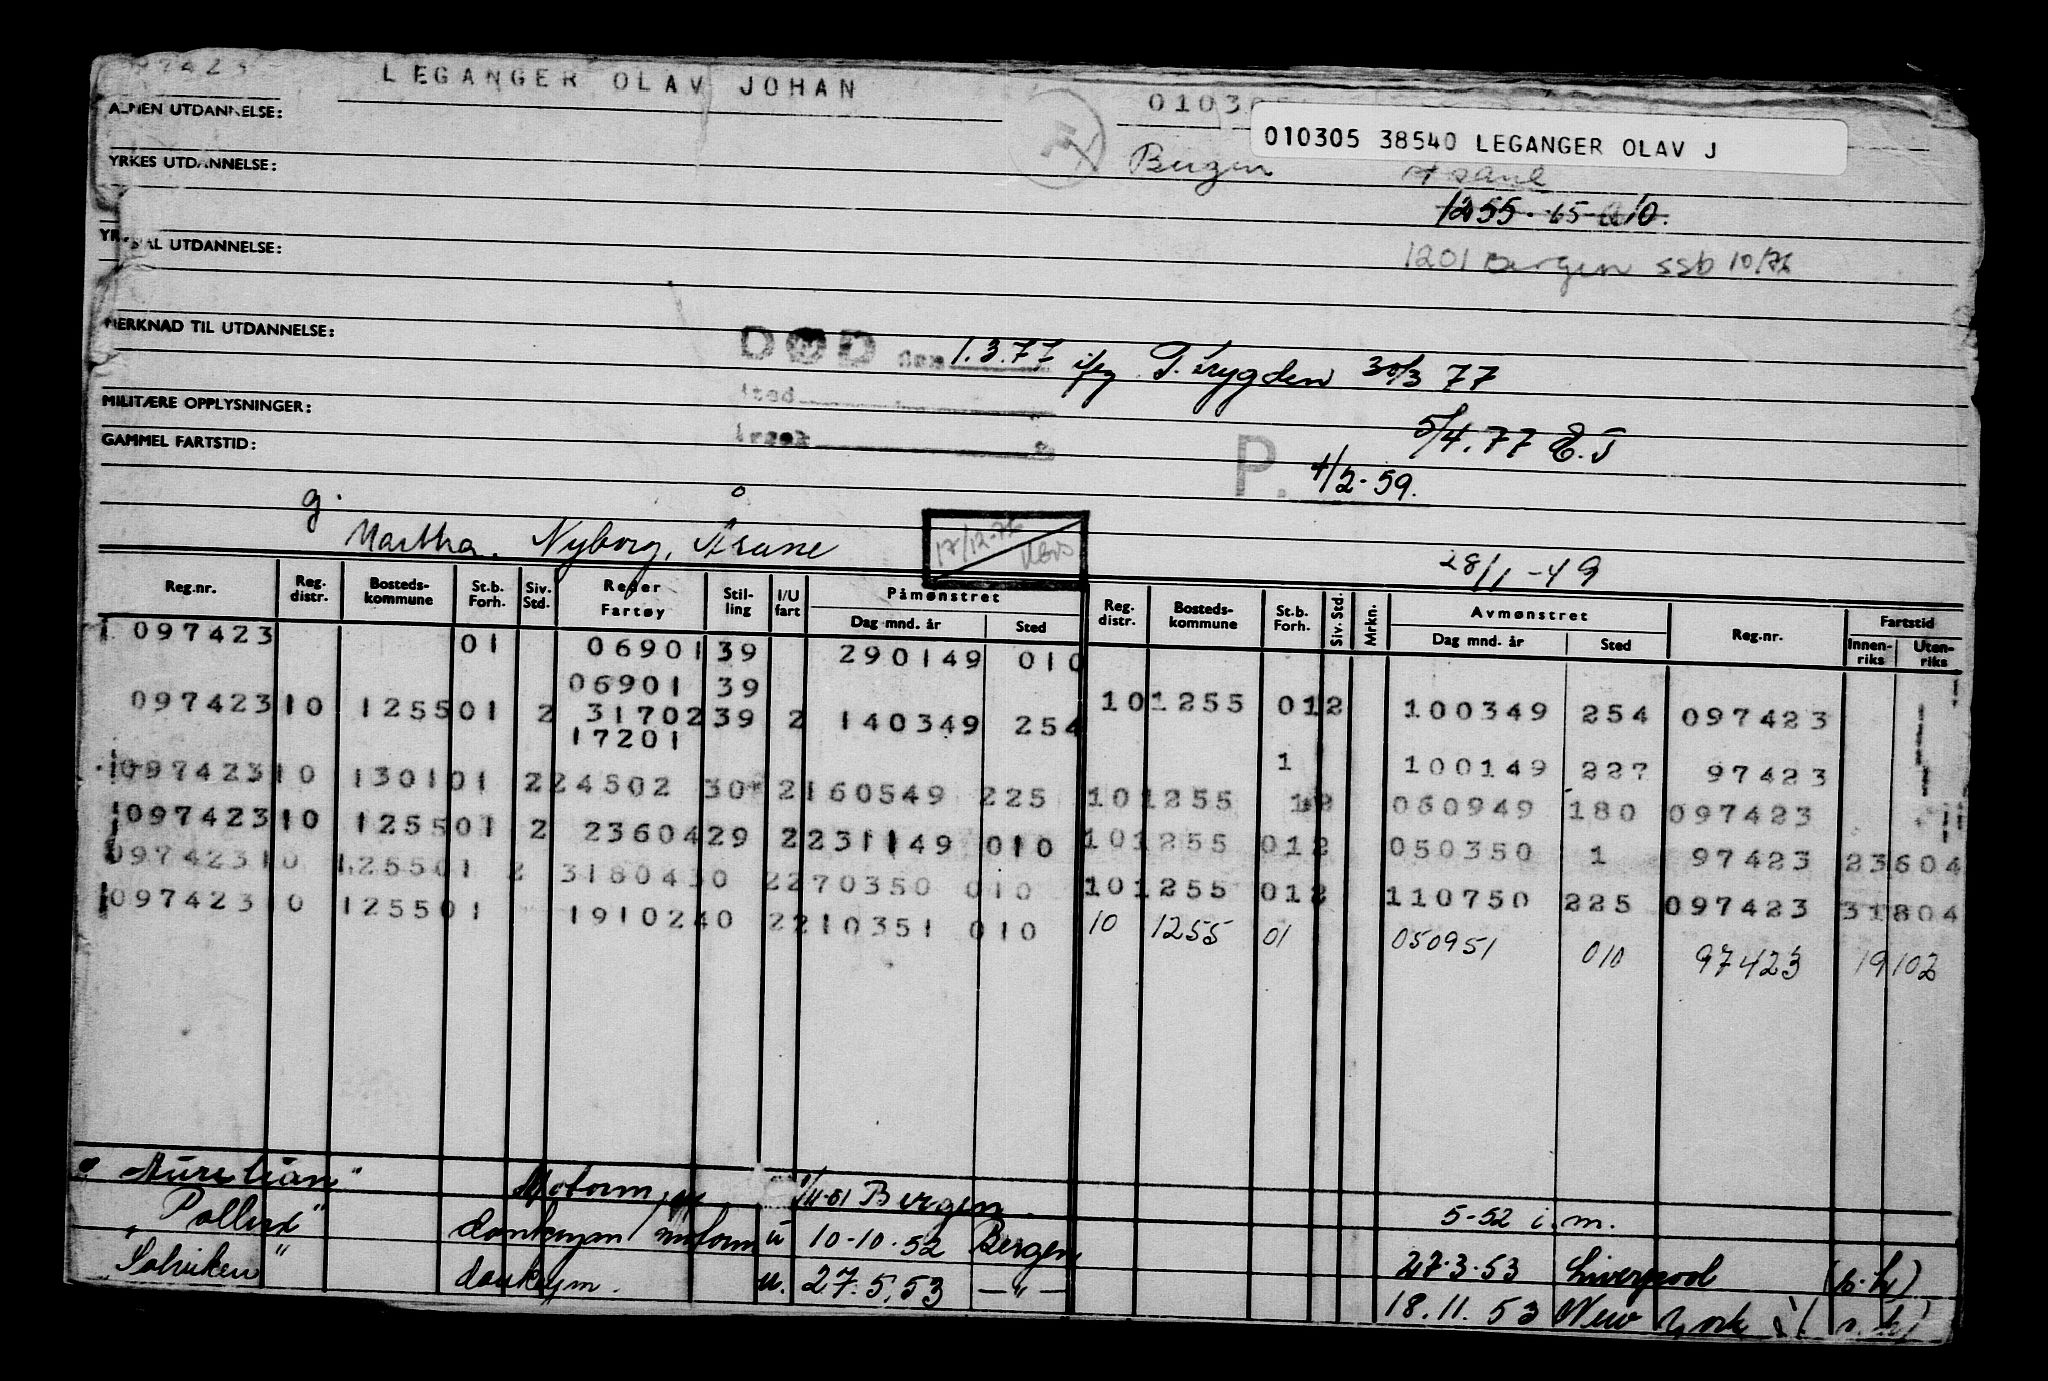 97423
LEGANGER OLAV JOHAN
01030
010305 38540 LEGANGER OLAV J
ALMEN UTDANNELSE:
YRKES UTDANNELSE:
Bergen Åsane
1255
1201 Bergen ssb 10/76
UTDANNELSE:
MERKNAD TIL UTDANNELSE:
DØD den 1.3.77 ifg T.trygden 30/3 77
sted
MILITÆRE OPPLYSNINGER:
5/4.77 E.J
GAMMEL FARTSTID:
P. 4/2-59.
g.
Martha. Nyborg, Åsane
17/12-76
28/1-49
Reg.nr. Reg. distr. Bosteds-kommune St.b. Forh. Siv. Std. Reder Fartøy Stil-ling I/U fart Påmønstret Dag mnd. år Sted Reg. distr. Bosteds-kommune St.b. Forh. Siv. Std. Mrkn. Avmønstret Dag mnd. år Sted Reg.nr. Fartstid Innen-riks Uten-riks
097423 01 06901 39 290149 010
06901 39 10 1255 01 2 100349 254 097423
097423 10 1255 01 2 31702 39 2 140349 254
17201 1 100149 227 97423
097423 10 1301 01 2 24502 30 2 160549 225 10 1255 1 2 060949 180 097423
097423 10 1255 01 2 23604 29 2 231149 010 10 1255 01 2 050350 1 97423 23604
097423 10 1255 01 2 31804 30 2 270350 010 10 1255 01 2 110750 225 097423 31804
097423 10 1255 01 19102 40 2 210351 010 10 1255 01 050951 010 97423 19102
"Aurelian" Motorm 11-51 Bergen 5-52 i.m.
"Pollux" donkeym u 10-10-52 Bergen 27-3-53 Liverpool
"Solviken" donkeym. u. 27.5.53 —"— 18.11.53 New York